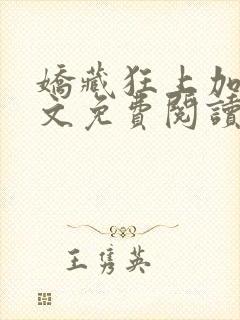 嬌藏狂上加
文免費閱讀
王隽英